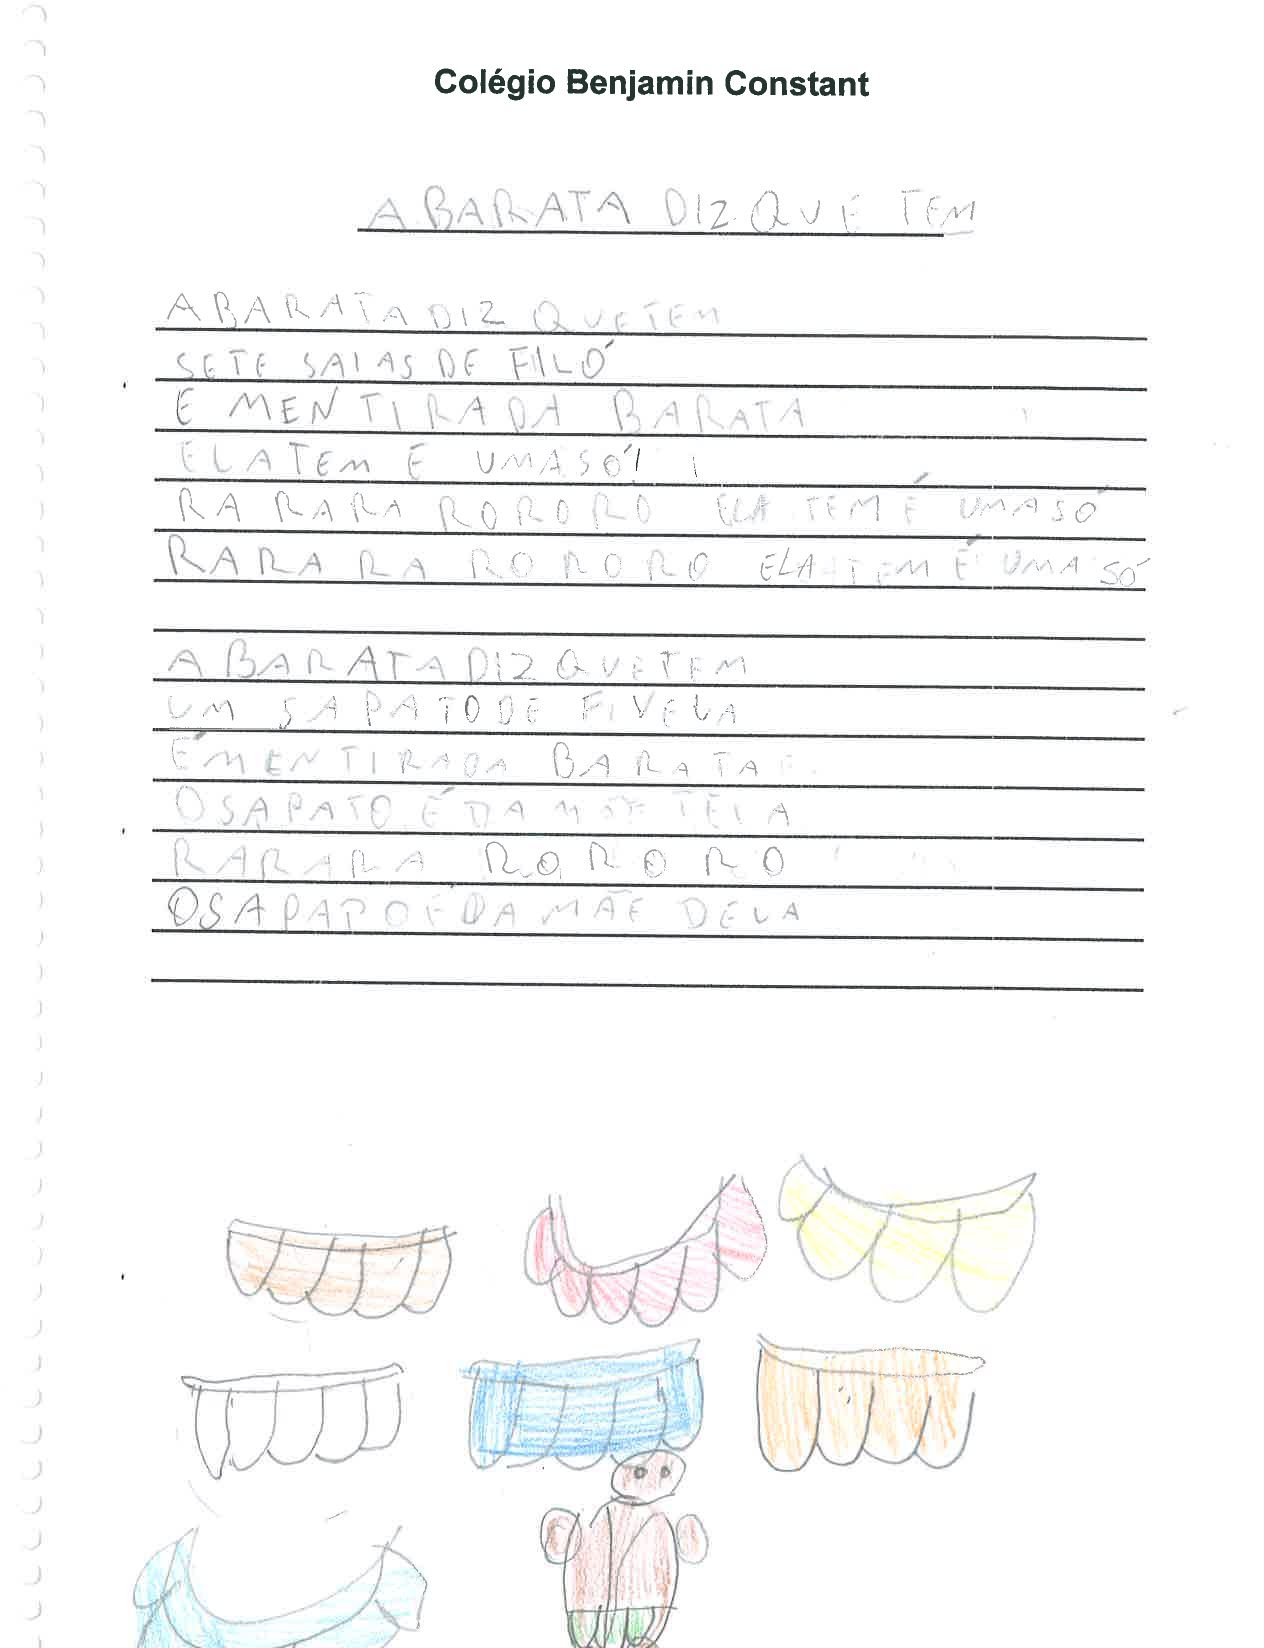 Colégio Benjamin Constant
A BARATA DIZ QUE TEM
A BARATA DIZ QUE TEM
SETE SAIAS DE FILÓ
E MENTIRA DA BARATA
ELA TEM E UMA SÓ!
RA RARA RORORO ELA TEM É UMA SÓ
RARA RA RO RORO ELA TEM É UMA SÓ
A BARATA DIZ QUE TEM
UM SAPATO DE FIVELA
É MENTIRA DA BARATA
O SAPATO É DA TELA
RARARA RO RORO
O SAPATO É DA MÃE DELA